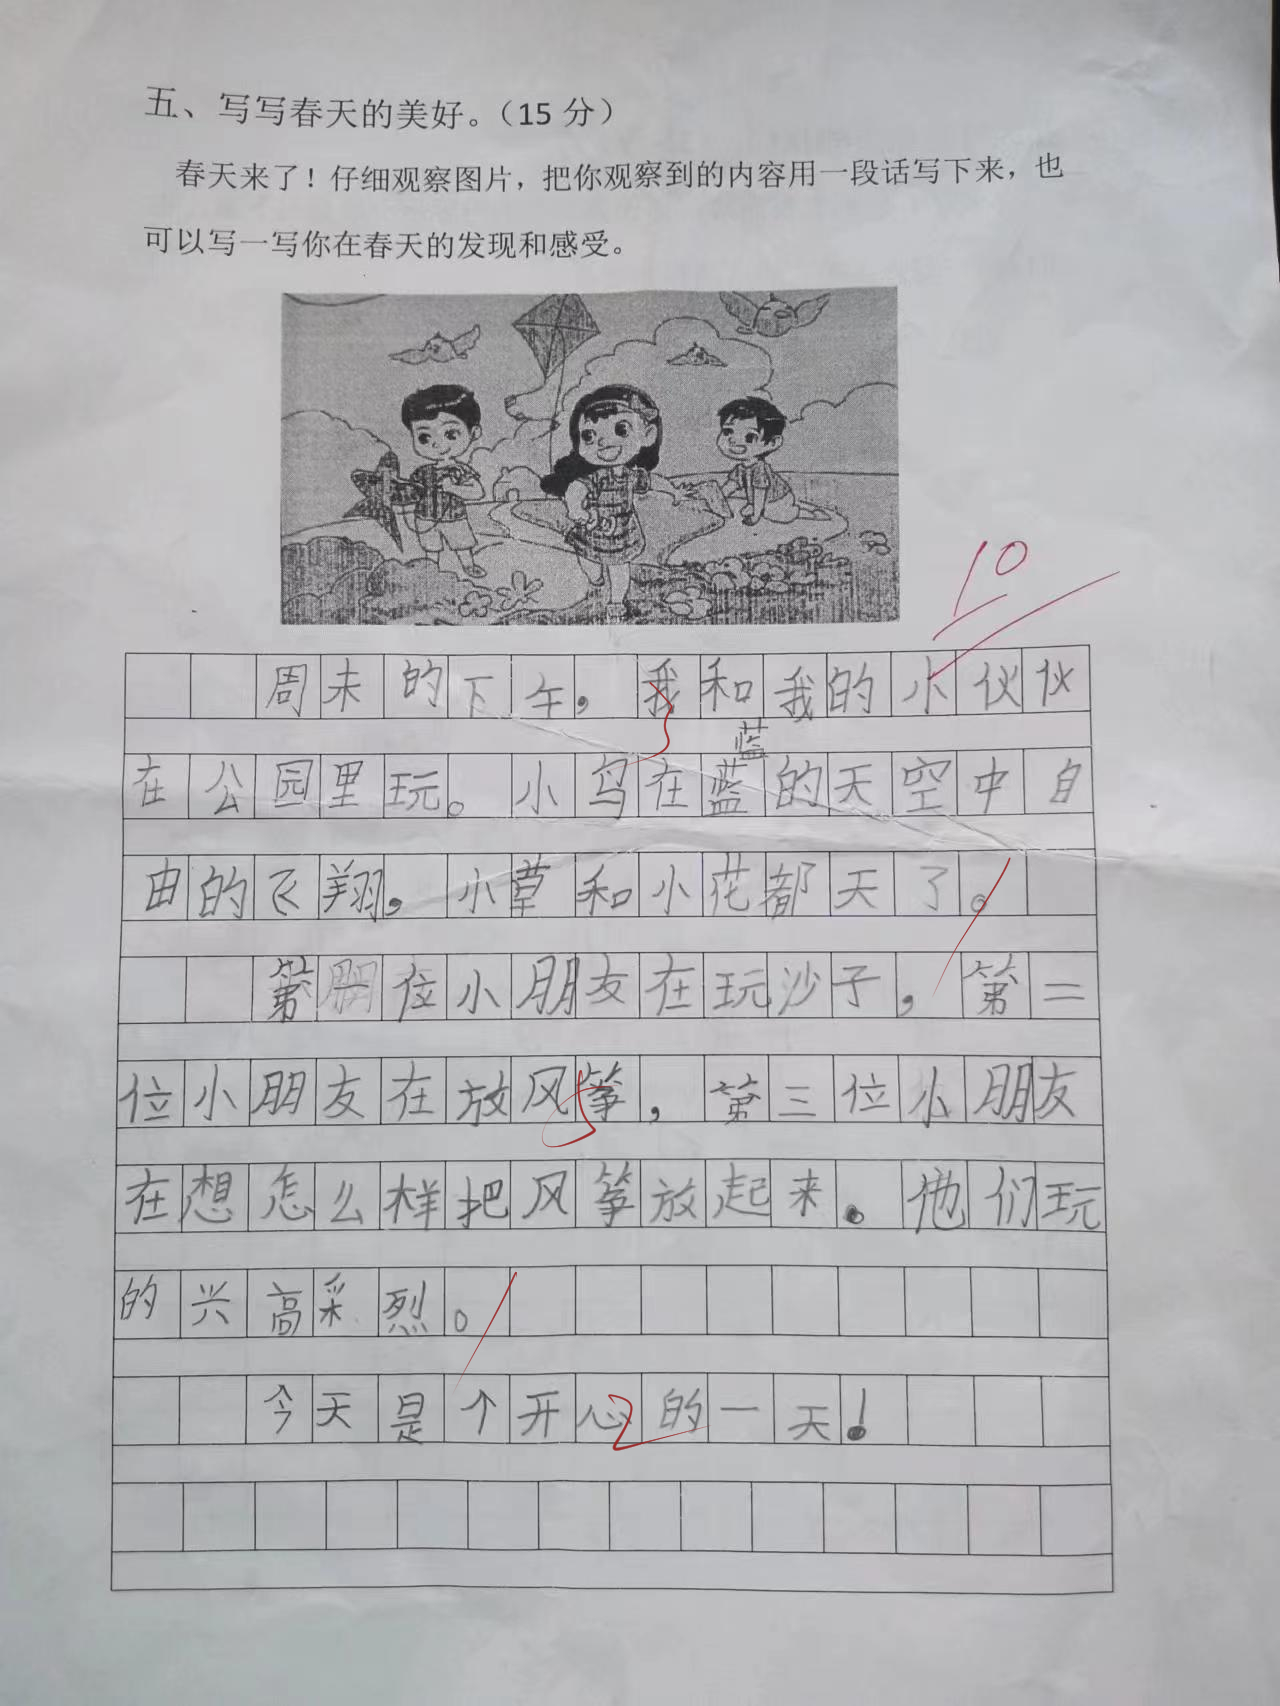 五、写写春天的美好。（15 分）
春天来了！仔细观察图片，把你观察到的内容用一段话写下来，也
可以写一写你在春天的发现和感受。
10
周未的下午，我和我的小伙伙
3
蓝
在公园里玩。小鸟在蓝的天空中自
由的飞翔，小草和小花都天了。
第一位小朋友在玩沙子，第二
位小朋友在放风筝，第三位小朋友
5
在想怎么样把风筝放起来。他们玩
的兴高采烈。
今天是个开心的一天！
2